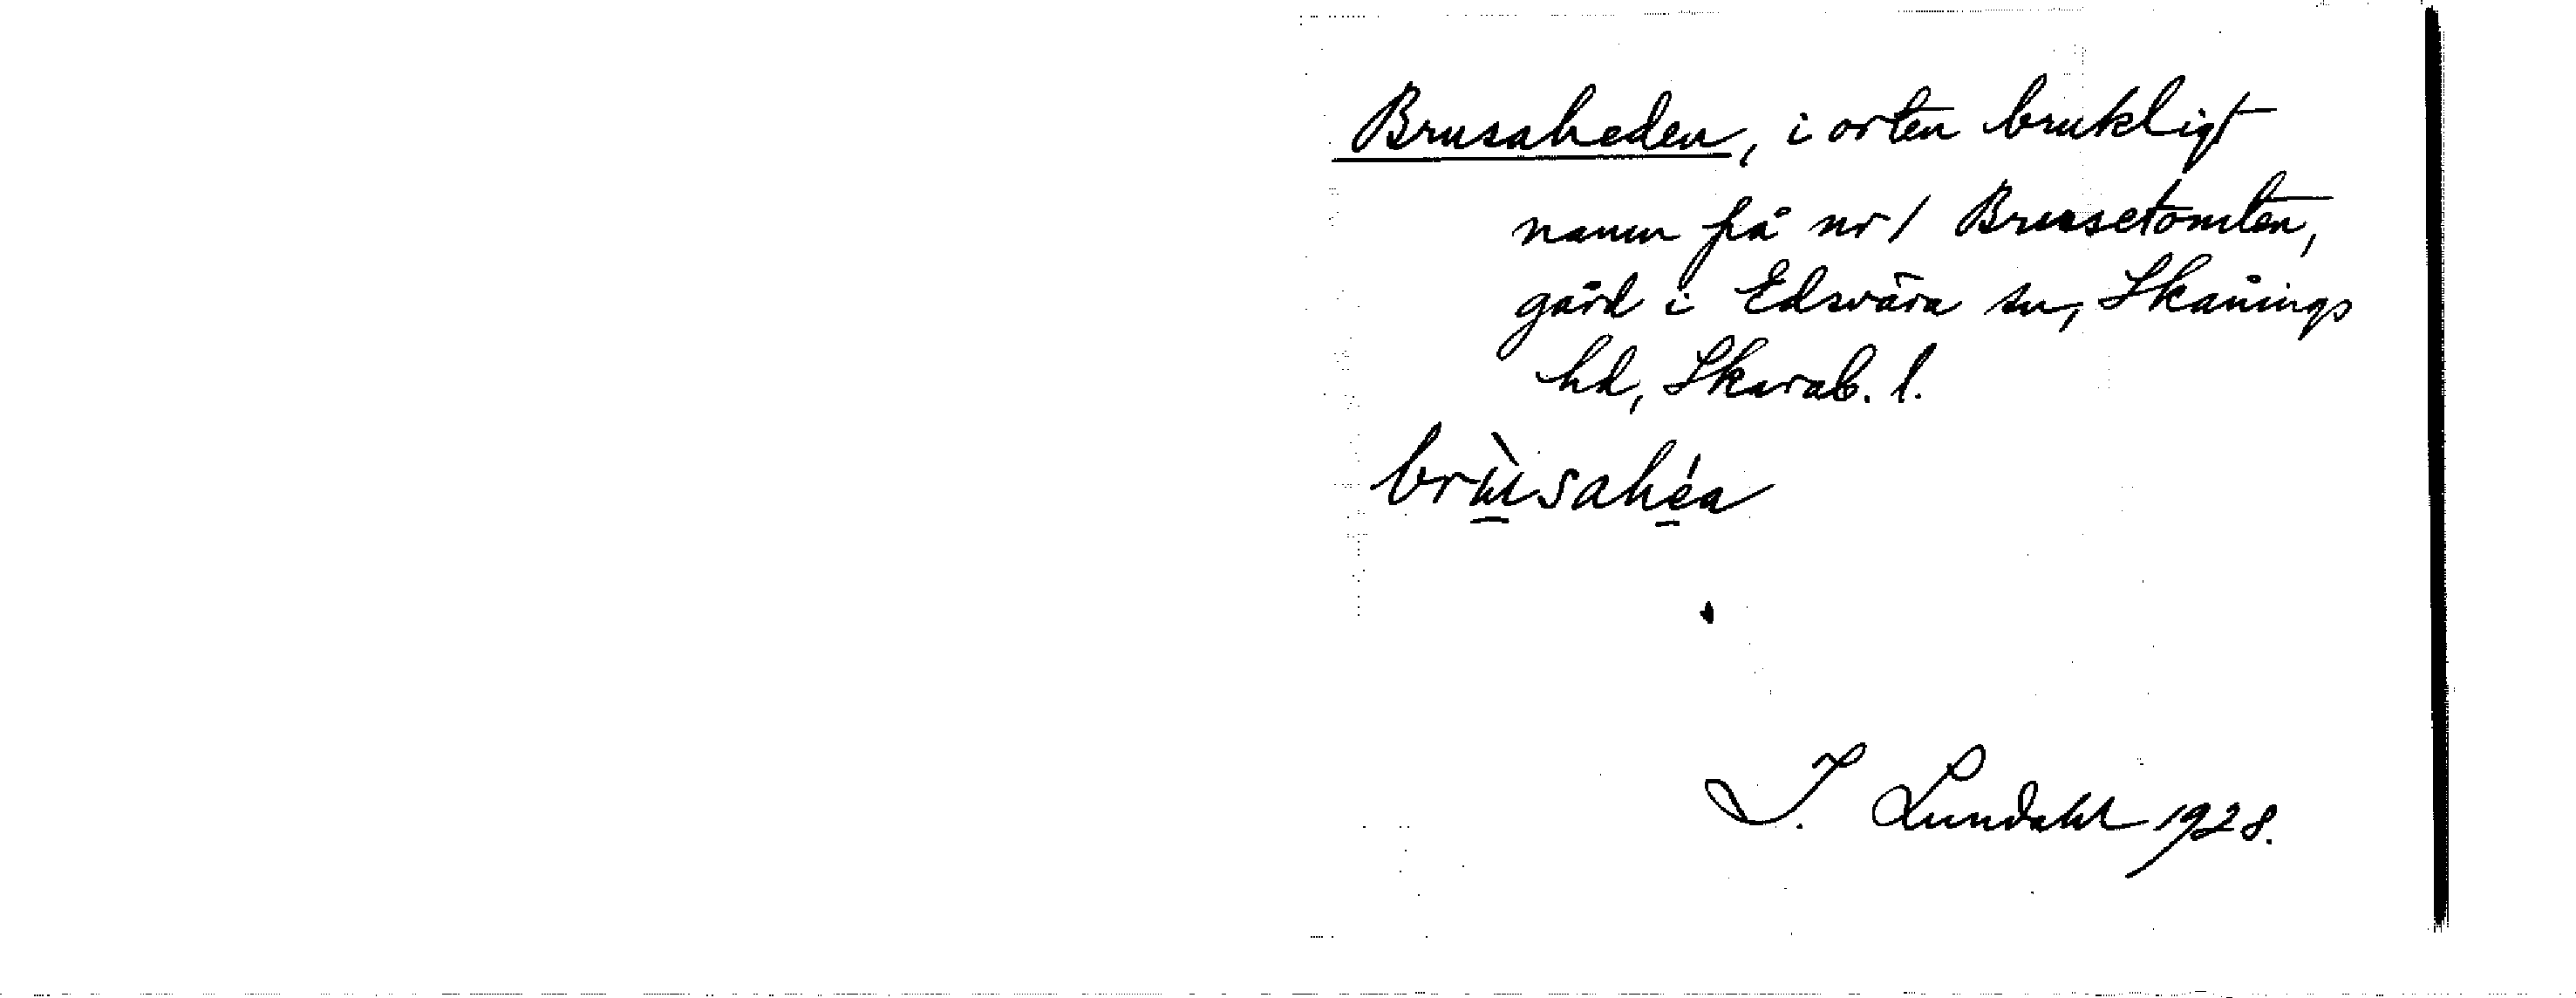 Brusaheden, i orten brukligt
namn på nr 1 Brusetomten,
gård i Edsvära sn, Skånings
hd, Skarab. l.
brùsahéa
I. Lundahl 1928.